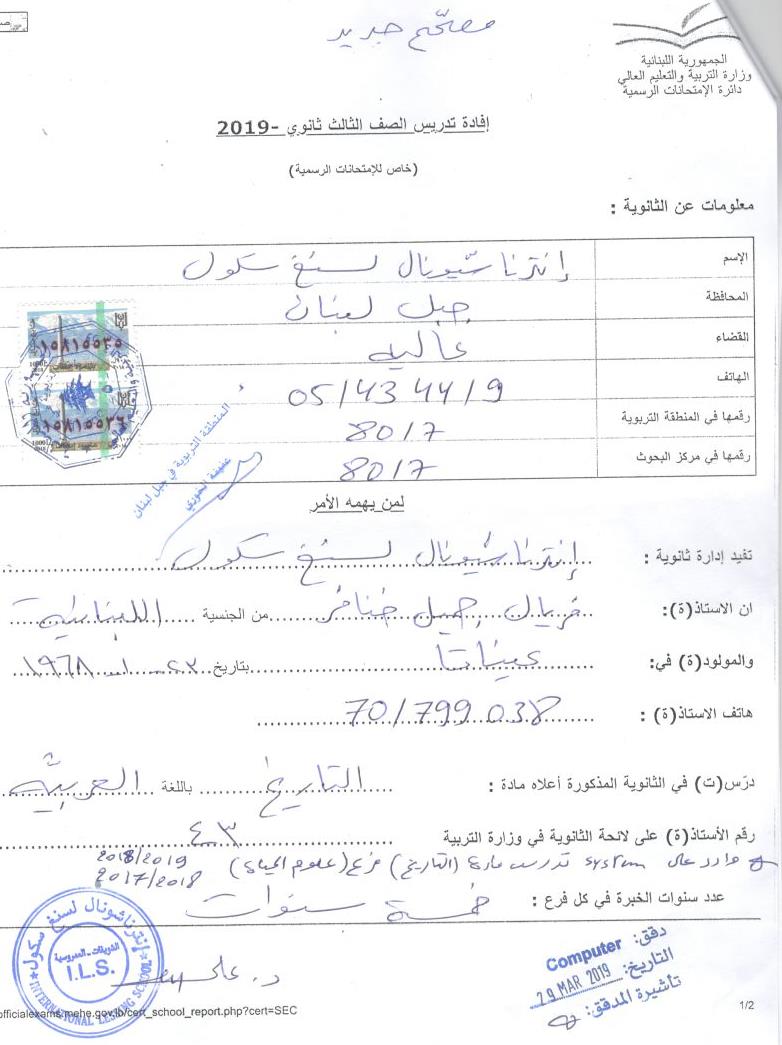 مصحّح جديد
الجمهورية اللبنانية
وزارة التربية والتعليم العالي
دائرة الإمتحانات الرسمية
إفادة تدريس الصف الثالث ثانوي -2019
(خاص للإمتحانات الرسمية)
معلومات عن الثانوية :
الإسم إنترناشيونال لسنغ سكول
المحافظة جبل لبنان
القضاء عاليه
الهاتف 05/434419
رقمها في المنطقة التربوية 8017
رقمها في مركز البحوث 8017
١٥٨١٥٥٣٥
١٥٨١٥٥٣٦
المنطقة التربوية في جبل لبنان
لمن يهمه الأمر
تفيد إدارة ثانوية : إنترناشيونال لسنغ سكول
ان الاستاذ(ة): فريال جميل خنافر من الجنسية اللبنانية
والمولود(ة) في: عيناتا بتاريخ ٢٣ - ١ - ١٩٦٨
هاتف الاستاذ(ة) : 70/799038
درّس(ت) في الثانوية المذكورة أعلاه مادة : التاريخ باللغة العربيّة
رقم الأستاذ(ة) على لائحة الثانوية في وزارة التربية ٤٣
وارد على system تدرس مادة (التاريخ) فرع (علوم الحياة) 2018/2019
2017/2018
عدد سنوات الخبرة في كل فرع : خمسة سنوات
إنترناشونال لسنغ سكول
I.L.S.
INTERNATIONAL LESSING SCHOOL
د. علي
دقق: Computer
التاريخ: 29 MAR 2019
تأشيرة المدقق:
officialexams.mehe.gov.lb/cert_school_report.php?cert=SEC
1/2